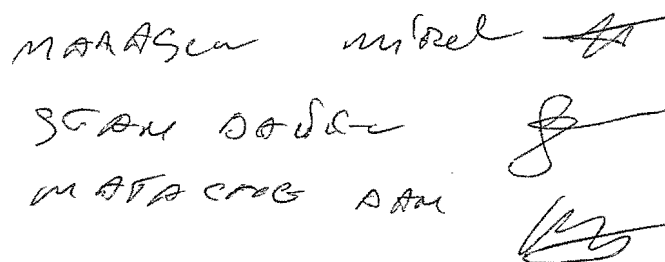 MARASCU MIREL
STAN DANIEL
MATACHE DAN